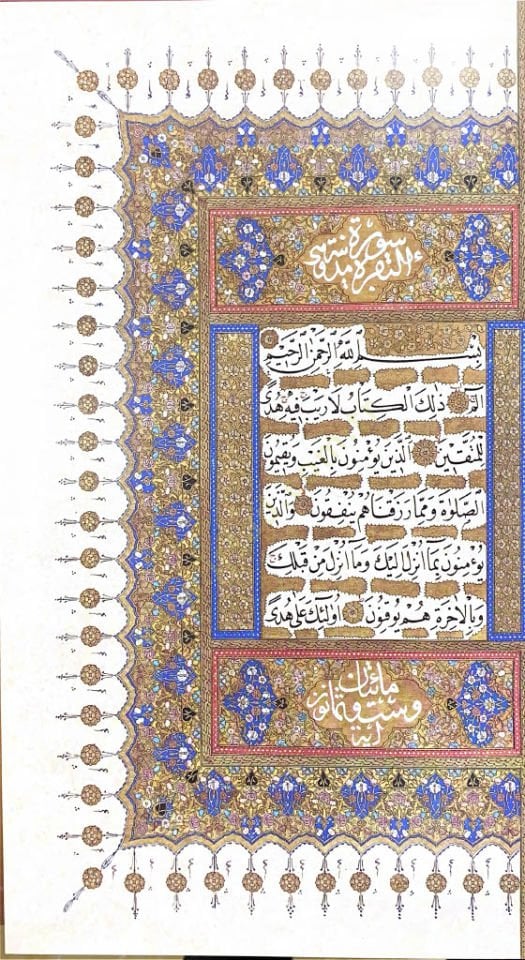 سورة البقرة مدنية وهي
بِسْمِ اللّٰهِ الرَّحْمٰنِ الرَّحٖيمِ
الٓمٓ ذٰلِكَ الْكِتَابُ لَا رَيْبَ فٖيهِ هُدًى
لِلْمُتَّقٖينَ اَلَّذٖينَ يُؤْمِنُونَ بِالْغَيْبِ وَيُقٖيمُونَ
الصَّلٰوةَ وَمِمَّا رَزَقْنَاهُمْ يُنْفِقُونَ وَالَّذٖينَ
يُؤْمِنُونَ بِمَٓا اُنْزِلَ اِلَيْكَ وَمَٓا اُنْزِلَ مِنْ قَبْلِكَ
وَبِالْاٰخِرَةِ هُمْ يُوقِنُونَ اُولٰٓئِكَ عَلٰى هُدًى
مائتان
وست وثمانون
آية